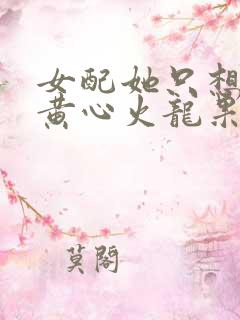 女配她只想
黄心火龍果
莫閣